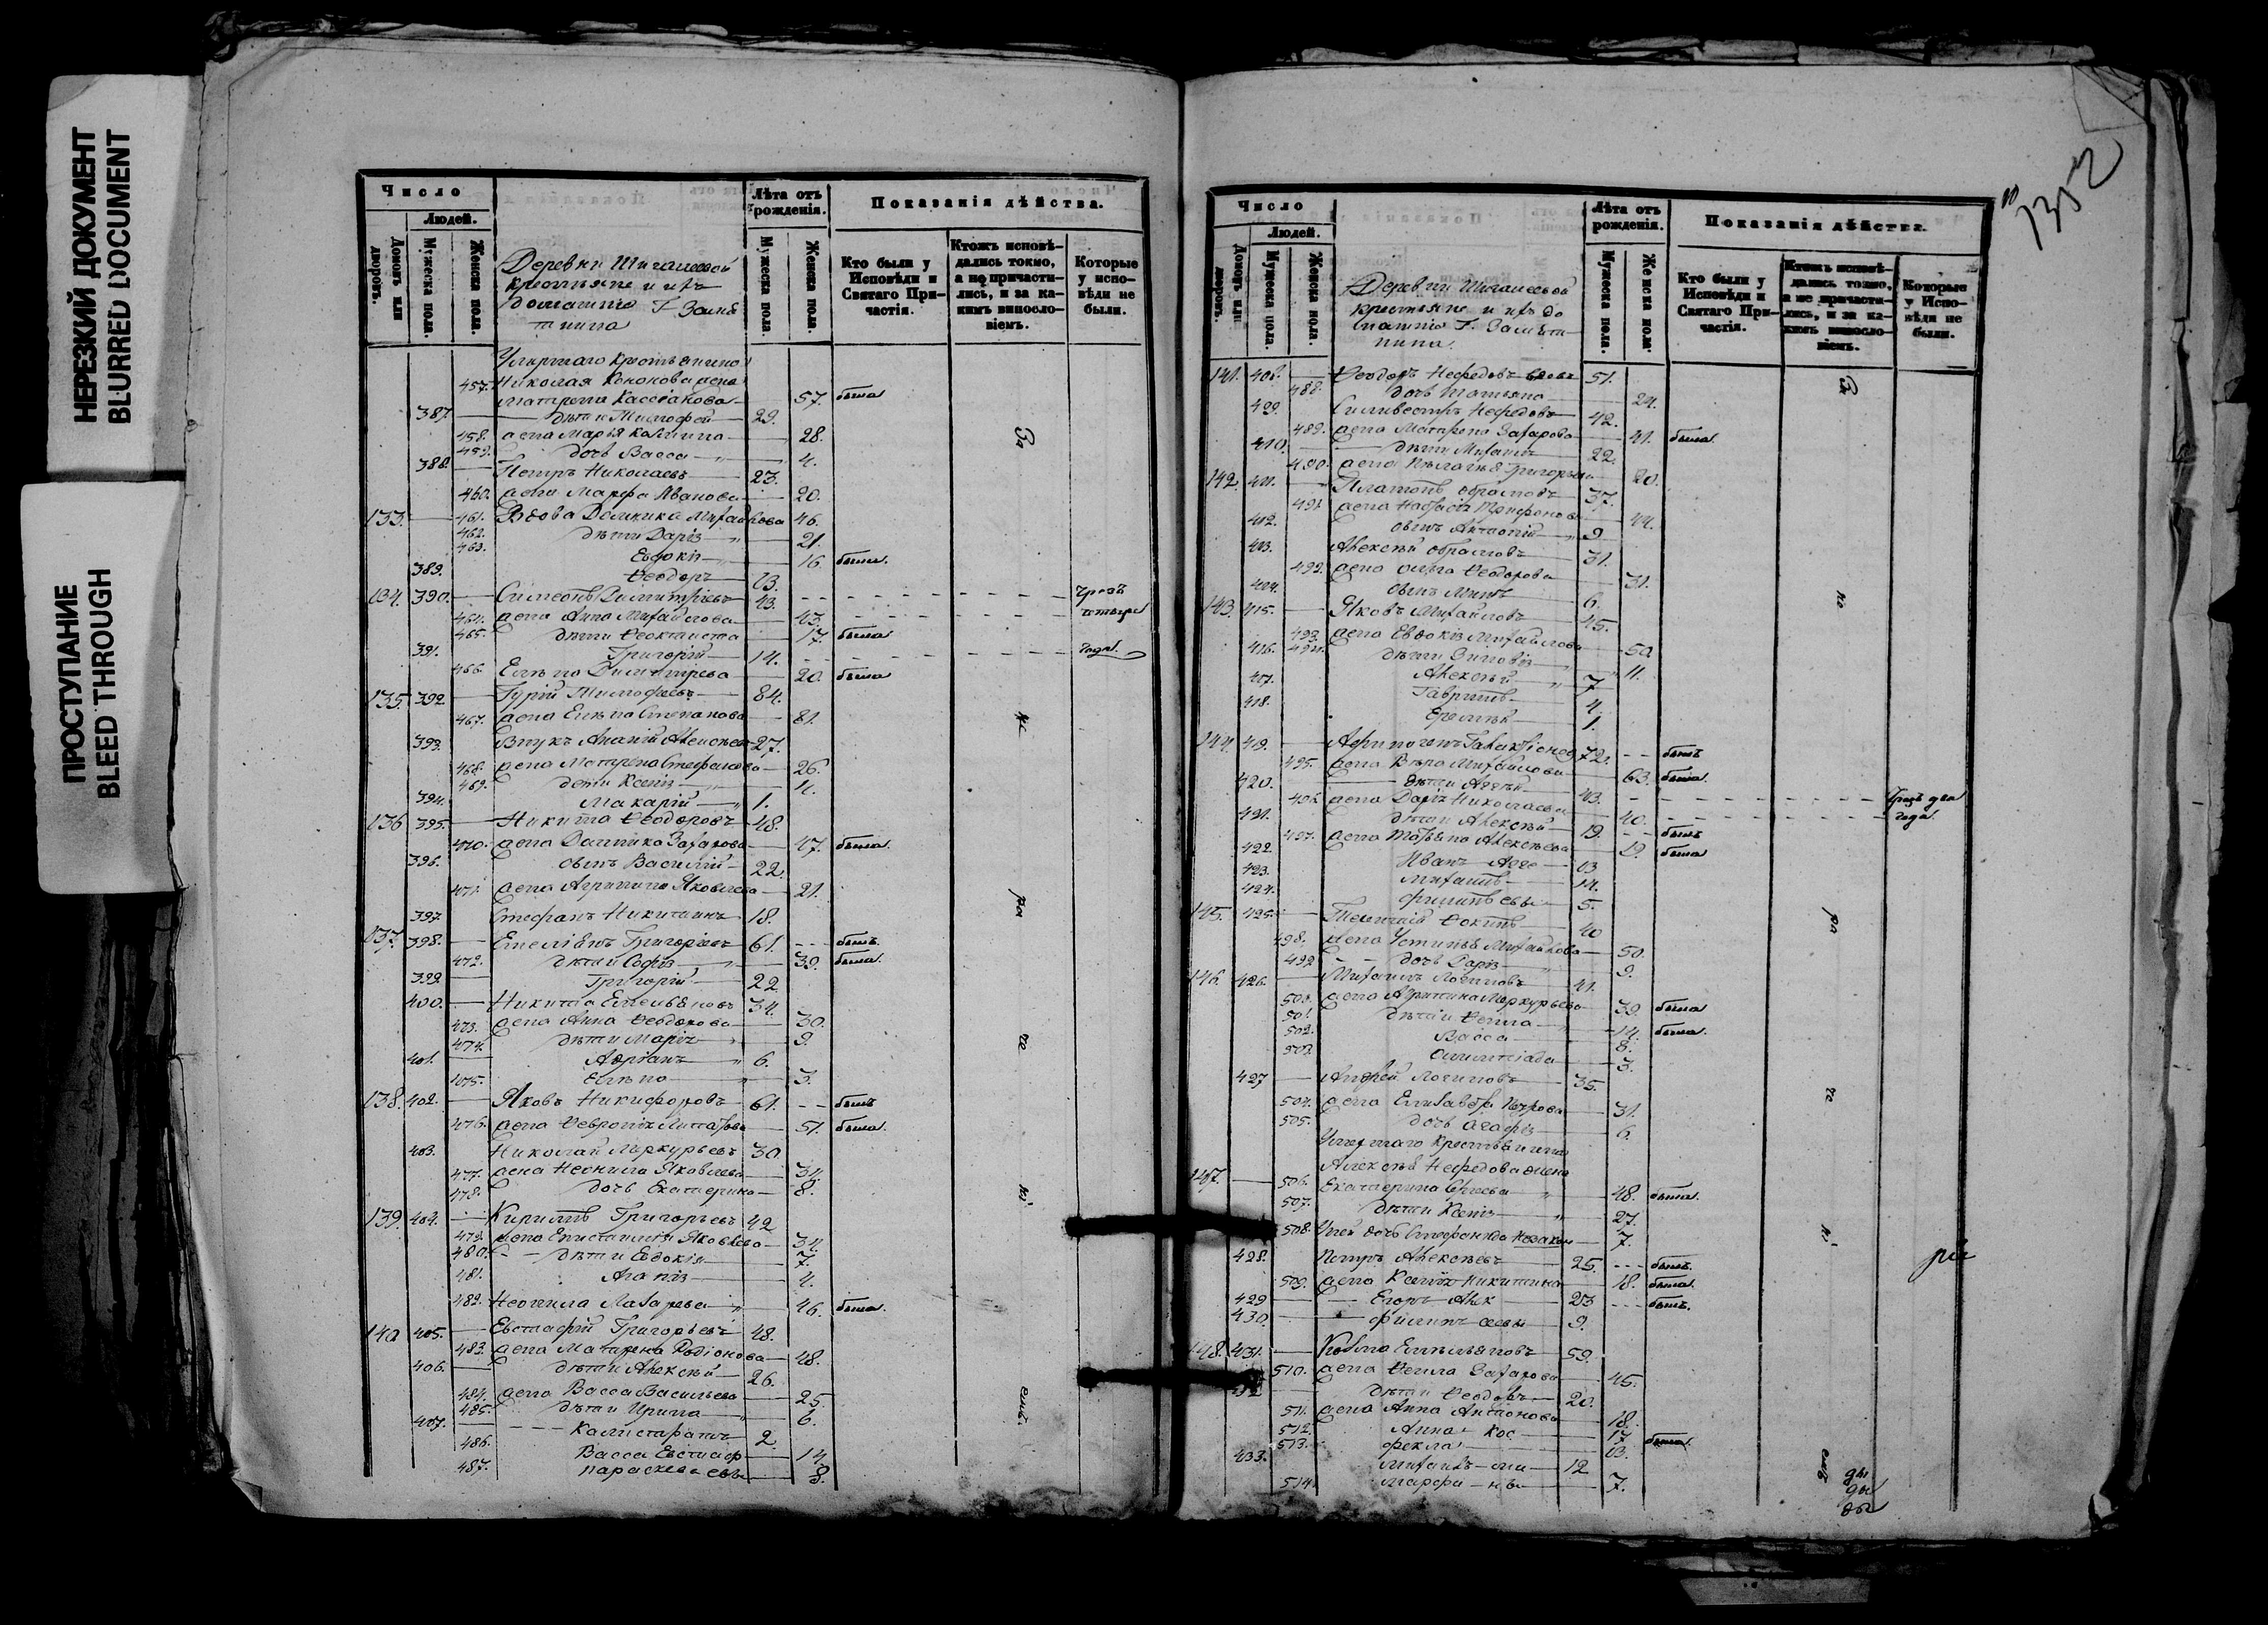 НЕРЕЗКИЙ ДОКУМЕНТ
BLURRED DOCUMENT
ПРОСТУПАНИЕ
BLEED THROUGH
Число
Людей.
Домовъ или дворовъ.
Мужеска пола.
Женска пола.
Лѣта отъ рожденія.
Мужеска пола.
Женска пола.
Показанія дѣйства.
Кто были у Исповѣди и Святаго Причастія.
Ктожъ исповѣдались токмо, а не причастились, и за какимъ винословіемъ.
Которые у исповѣди не были.
Деревни
крестьяне и ихъ
домашніе Г.
Умершаго крестьянина
457. Николая Кононова жена
Матрена 57. была
387. дѣти Тимофей 29.
458. жена Марья 28.
459. дочь Васса 4.
388. Петръ Николаевъ 23.
460. жена Марфа Иванова 20.
133. 461. Вдова Домника Михайлова 46.
462. дѣти Дарія 21.
463. Евдокія 16 была.
389. Ѳеодоръ 13.
134. 390. Симеонъ Димитріевъ 43. чрезъ
464. жена Анна Михайлова 43. четыре
465. дѣти Ѳеоктиста 17. была
391. Григорій 14. года.
466. Елена Димитріева 20. была
135. 392. Гурій Тимофеевъ 84.
467. жена Елена Степанова 81.
393. Внукъ Ананій Алексѣевъ 27.
468. жена Матрена Стефанова 26.
469. дети Ксенія 4.
394. Макарій 1.
136 395. Никита Ѳеодоровъ 48.
470. жена Домника Захарова 47. была.
396. сынъ Василій 22.
471. жена Агрипина Яковлева 21.
397. Стефанъ Никитинъ 18.
137. 398. Емеліянъ Григорьевъ 61. былъ.
472. дѣти Софія 39. была.
399. Григорій 22
400. Никита Емельяновъ 34.
473. жена Анна Ѳеодорова 30.
474. дѣти Марія 9.
401. Адріанъ 6.
475. Елена 3.
138. 402. Яковъ Никифоровъ 61. былъ
476. жена Ѳевронія 51. была.
403. Николай Меркурьевъ 30
477. жена Неонила Яковлева 34.
478. дочь Екатерина 8.
139. 404. Кирилъ Григорьевъ 42
479. жена Епистимія Яковлева 34.
480. дѣти Евдокія 7.
481. Агапія 4.
482. Неонила Лазарева 46. была.
140 405. Евстафій Григорьевъ 48.
483. жена Матрена Родіонова 48.
406. дѣти Алексѣй 26.
484. жена Васса Васильева 25.
485. дѣти Ирина 6.
407. Калистратъ 2.
486. Васса Евстаф 14
487. Параскева евы 8.
За
не
ра
че
ні
емъ.
1352
Число
Людей.
Домовъ или дворовъ.
Мужеска пола.
Женска пола.
Лѣта отъ рожденія.
Мужеска пола.
Женска пола.
Показанія дѣйства.
Кто были у Исповѣди и Святаго Причастія.
Ктожъ исповѣдались токмо, а не причастились, и за какимъ винословіемъ.
Которые у Исповѣди не были.
Деревни
крестьяне и ихъ до
машніе Г.
141. 408. Ѳеодоръ Нефедовъ 51.
488. дочь Татьяна 24.
409. Силивестръ Нефедовъ 42.
489. жена Матрена Захарова 41. была.
410. дѣти Михаилъ 22.
490. жена Пелагія Григорьева 20.
142. 411. Платонъ 37.
491. жена Настасія 44.
412. сынъ 9
413. Алексѣй 31.
492. жена Ольга Ѳеодорова 31.
414. сынъ 6.
143. 415. Яковъ Михайловъ 45.
493. жена Евдокія Михайлова 50
416. 494. дѣти Зиновія 11.
417. Алексѣй 7
418. Гаврилъ 4.
Еремѣй 1.
144. 419. Афиногенъ Галактіонов 72. былъ
495. жена Вѣра Михайлова 63. была.
420. дѣти Авдѣй 43. чрезъ два
496. жена Дарія Николаева 40. года.
421. дѣти Алексѣй 19 былъ
497. жена Татьяна Алексѣева 19. была
422. Иванъ 13
423. Михаилъ 14.
424. Филипъ евы 5.
145. 425. 40
498. жена Устинья Михайлова 50.
499 дочь Дарія 9.
146. 426. Михаилъ Логиновъ 41.
500. жена Агрипина Меркурьева 39. была
501. дѣти Ѳекла 14. была.
502. Васса 8.
503. Олимпіада 3.
427 Андрей Логиновъ 35.
504. жена Елизавета Петрова 31.
505. дочь Агафія 6.
Умершаго крестьянина
Алексѣя Нефедова жена
147. 506. Екатерина Сергеева 48. была.
507. дѣти Ксенія 27.
508. У ней дочь Стефанида 7.
428. Петръ Алексѣевъ 25. былъ.
509. жена Ксенія Никитина 18. была.
429 Егоръ Алек 23 былъ.
430. Филипъ сеевы 9.
148. 431. Козма Емельяновъ 59.
510. жена Ѳекла Захарова 45.
432 дѣти Ѳеодоръ 20.
511. жена Анна Антонова 18.
512. Анна Кос 17.
513. Фекла 13. была.
433. Михаилъ 12
514. Марфа 7.
За
не
ра
че
ні
емъ